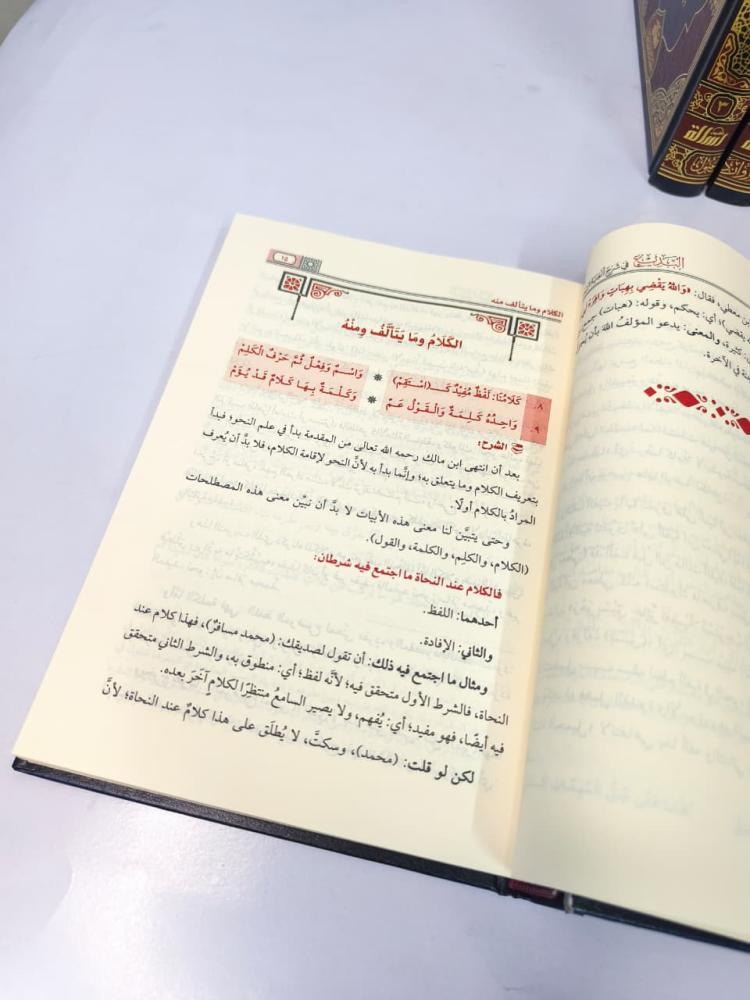 البديع
في شرح ألفية
ابن معطي، فقال: «والله يقضي بهبات وافرة
يقضي) أي: يحكم، وقوله: (هبات) جمع
كثيرة، والمعنى: يدعو المؤلف الله بأن
في الآخرة.
١٥
الكلام وما يتألف منه
الكَلَامُ ومَا يَتَألَّفُ مِنْهُ
٨. كَلَامُنَا: لَفْظٌ مُفِيْدٌ كَـ(اسْتَقِمْ) * وَاسْمٌ وَفِعْلٌ ثُمَّ حَرْفٌ الْكَلِمْ
٩. وَاحِدُهُ كَلِمَةٌ وَالْقَوْلُ عَمّْ * وَكَلْمَةٌ بِهَا كَلَامٌ قَدْ يُؤَمّْ
الشرح:
بعد أن انتهى ابن مالك رحمه الله تعالى من المقدمة بدأ في علم النحو؛ فبدأ
بتعريف الكلام وما يتعلق به؛ وإنَّما بدأ به لأنَّ النحو لإقامة الكلام، فلا بدَّ أن يُعرف
المرادُ بالكلام أولًا.
وحتى يتبيَّن لنا معنى هذه الأبيات لا بدَّ أن نبيِّن معنى هذه المصطلحات
(الكلام، والكلِم، والكلمة، والقول).
فالكلام عند النحاة ما اجتمع فيه شرطان:
أحدهما: اللفظ.
والثاني: الإفادة.
ومثال ما اجتمع فيه ذلك: أن تقول لصديقك: (محمد مسافرٌ)، فهذا كلام عند
النحاة، فالشرط الأول متحقق فيه؛ لأنَّه لفظ؛ أي: منطوق به، والشرط الثاني متحقق
فيه أيضًا، فهو مفيد؛ أي: يُفهم، ولا يصير السامعُ منتظِرًا لكلامٍ آخَرَ بعده.
لكن لو قلت: (محمد)، وسكتَّ، لا يُطلَق على هذا كلامٌ عند النحاة؛ لأنَّ
٣